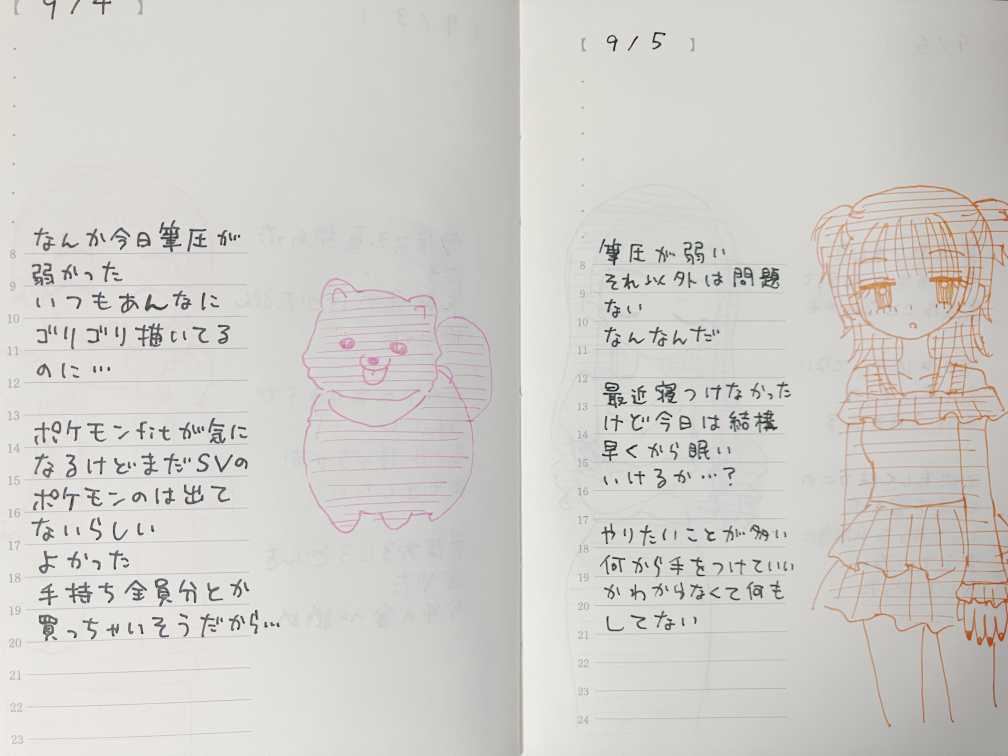 【 9/4 】
なんか今日筆圧が
弱かった
いつもあんなに
ゴリゴリ描いてる
のに…
ポケモンfitが気に
なるけどまだSVの
ポケモンのは出て
ないらしい
よかった
手持ち全員分とか
買っちゃいそうだから…
8
9
10
11
12
13
14
15
16
17
18
19
20
21
22
23
【 9/5 】
筆圧が弱い
それ以外は問題
ない
なんなんだ
最近寝つけなかった
けど今日は結構
早くから眠い
いけるか…?
やりたいことが多い
何から手をつけていい
かわからなくて何も
してない
8
9
10
11
12
13
14
15
16
17
18
19
20
21
22
23
24